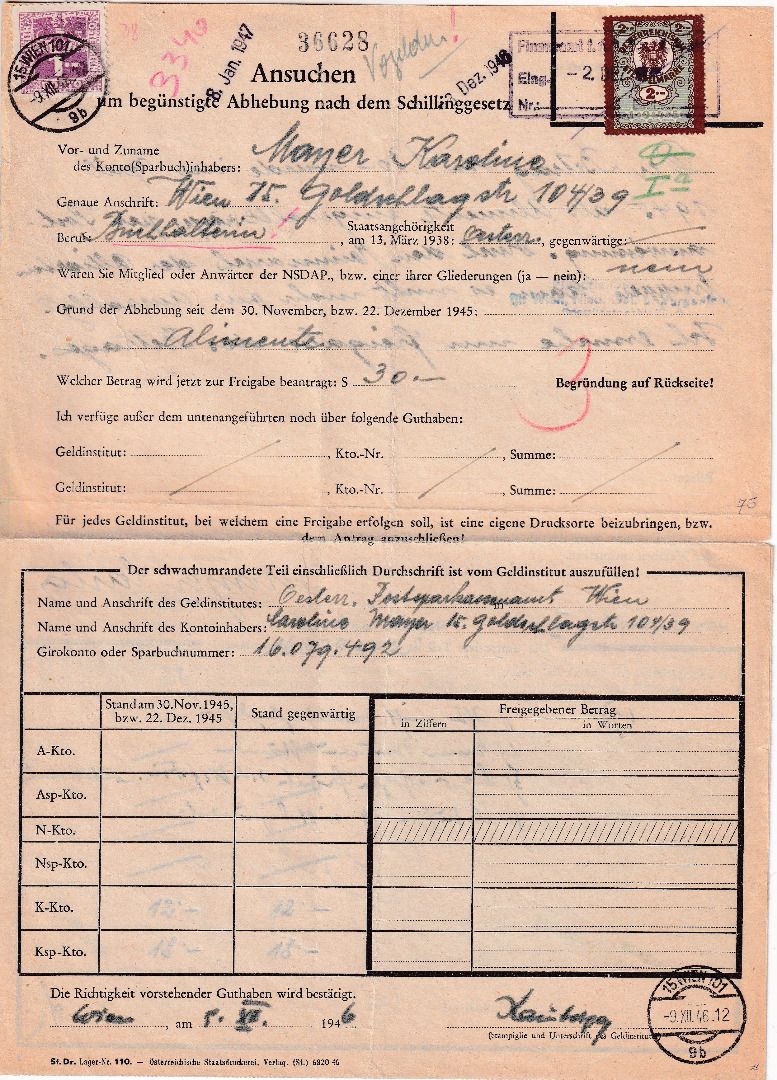 15 WIEN 101
-9.XII.46.12
9b
38
3340
8. Jan. 1947
36628
2. Dez. 1946
Finanzamt
Eing.
-2.
Nr.:
2 2
2
Ansuchen
um begünstigte Abhebung nach dem Schillinggesetz
Vor- und Zuname
des Konto(Sparbuch)inhabers: Mayer Karoline
Genaue Anschrift: Wien 15. Goldschlagstr 104/39
Beruf: Buchhalterin, Staatsangehörigkeit am 13. März 1938: Oesterr., gegenwärtige:
Waren Sie Mitglied oder Anwärter der NSDAP., bzw. einer ihrer Gliederungen (ja — nein): nein
Grund der Abhebung seit dem 30. November, bzw. 22. Dezember 1945:
Alimente
Welcher Betrag wird jetzt zur Freigabe beantragt: S 30.— Begründung auf Rückseite!
3
Ich verfüge außer dem untenangeführten noch über folgende Guthaben:
Geldinstitut: / , Kto.-Nr. / , Summe: /
Geldinstitut: / , Kto.-Nr. / , Summe: /
73
Für jedes Geldinstitut, bei welchem eine Freigabe erfolgen soll, ist eine eigene Drucksorte beizubringen, bzw.
dem Antrag anzuschließen!
Der schwachumrandete Teil einschließlich Durchschrift ist vom Geldinstitut auszufüllen!
Name und Anschrift des Geldinstitutes: Oesterr. Postsparkassenamt Wien
Name und Anschrift des Kontoinhabers: Caroline Mayer 15. Goldschlagstr 104/39
Girokonto oder Sparbuchnummer: 16.079.492
Stand am 30. Nov. 1945, bzw. 22. Dez. 1945
Stand gegenwärtig
Freigegebener Betrag
in Ziffern
in Worten
A-Kto.
Asp-Kto.
N-Kto.
Nsp-Kto.
K-Kto. 12.— 12.—
Ksp-Kto. 18.— 18.—
Die Richtigkeit vorstehender Guthaben wird bestätigt.
Wien, am 9. XII. 1946
(Stampiglie und Unterschrift des Geldinstitutes)
15 WIEN 101
-9.XII.46.12
9b
St. Dr. Lager-Nr. 110. — Österreichische Staatsdruckerei. Verlag. (St.) 6820 46